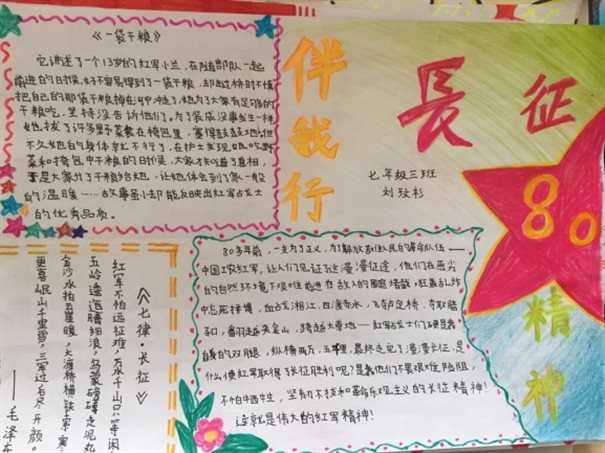 《一袋干粮》
它讲述了一个13岁的红军小兰，在随部队一起
前进的日子里，好不容易得到了一袋干粮，却在过桥时不慎
把自己的那袋干粮掉在河中冲走了，她为了大家有足够的
干粮吃，坚持没告诉他们，为了装成没事发生一样
她拔了许多野菜塞在挎包里，塞得鼓鼓地但
不久她的身体就不行了，在护士发现她吃野
菜和挎包中干粮的
大家才知道了真相，
于是大家分了干粮给她，让她体会到了家一般
的温暖……故事虽小却能反映出红军战士
的优秀品质。
伴我行
長征
七年级三班
刘玟杉
80
精神
《七律·长征》
红军不怕远征难，万水千山只等闲
五岭逶迤腾细浪，乌蒙磅礴走泥丸
金沙水拍云崖暖，大渡桥横铁索寒
更喜岷山千里雪，三军过后尽开颜。
——毛泽东
80多年前，一支为了正义，为了解放
民的革命队伍——
中国工农红军，让人们见证了这漫漫征途，他们在恶劣
的自然环境下艰难
在敌人的围追堵截，狂轰乱炸
中忘死拼搏，血战湘江，四渡赤水，飞夺泸定桥，夺取腊
子口，翻
夹金山，跨越大草地——红军战士们硬是靠
自身的双腿，纵横两万五千里，最终走完了漫漫长征，是
什么使红军取得了长征胜利呢？是靠他们不畏艰难险阻，
不怕牺牲，坚韧不拔和革命乐观主义的长征精神！
这就是伟大的红军精神！